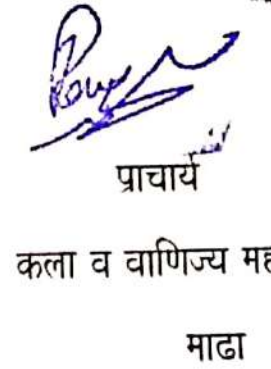 प्राचार्य
कला व वाणिज्य मह
माढा